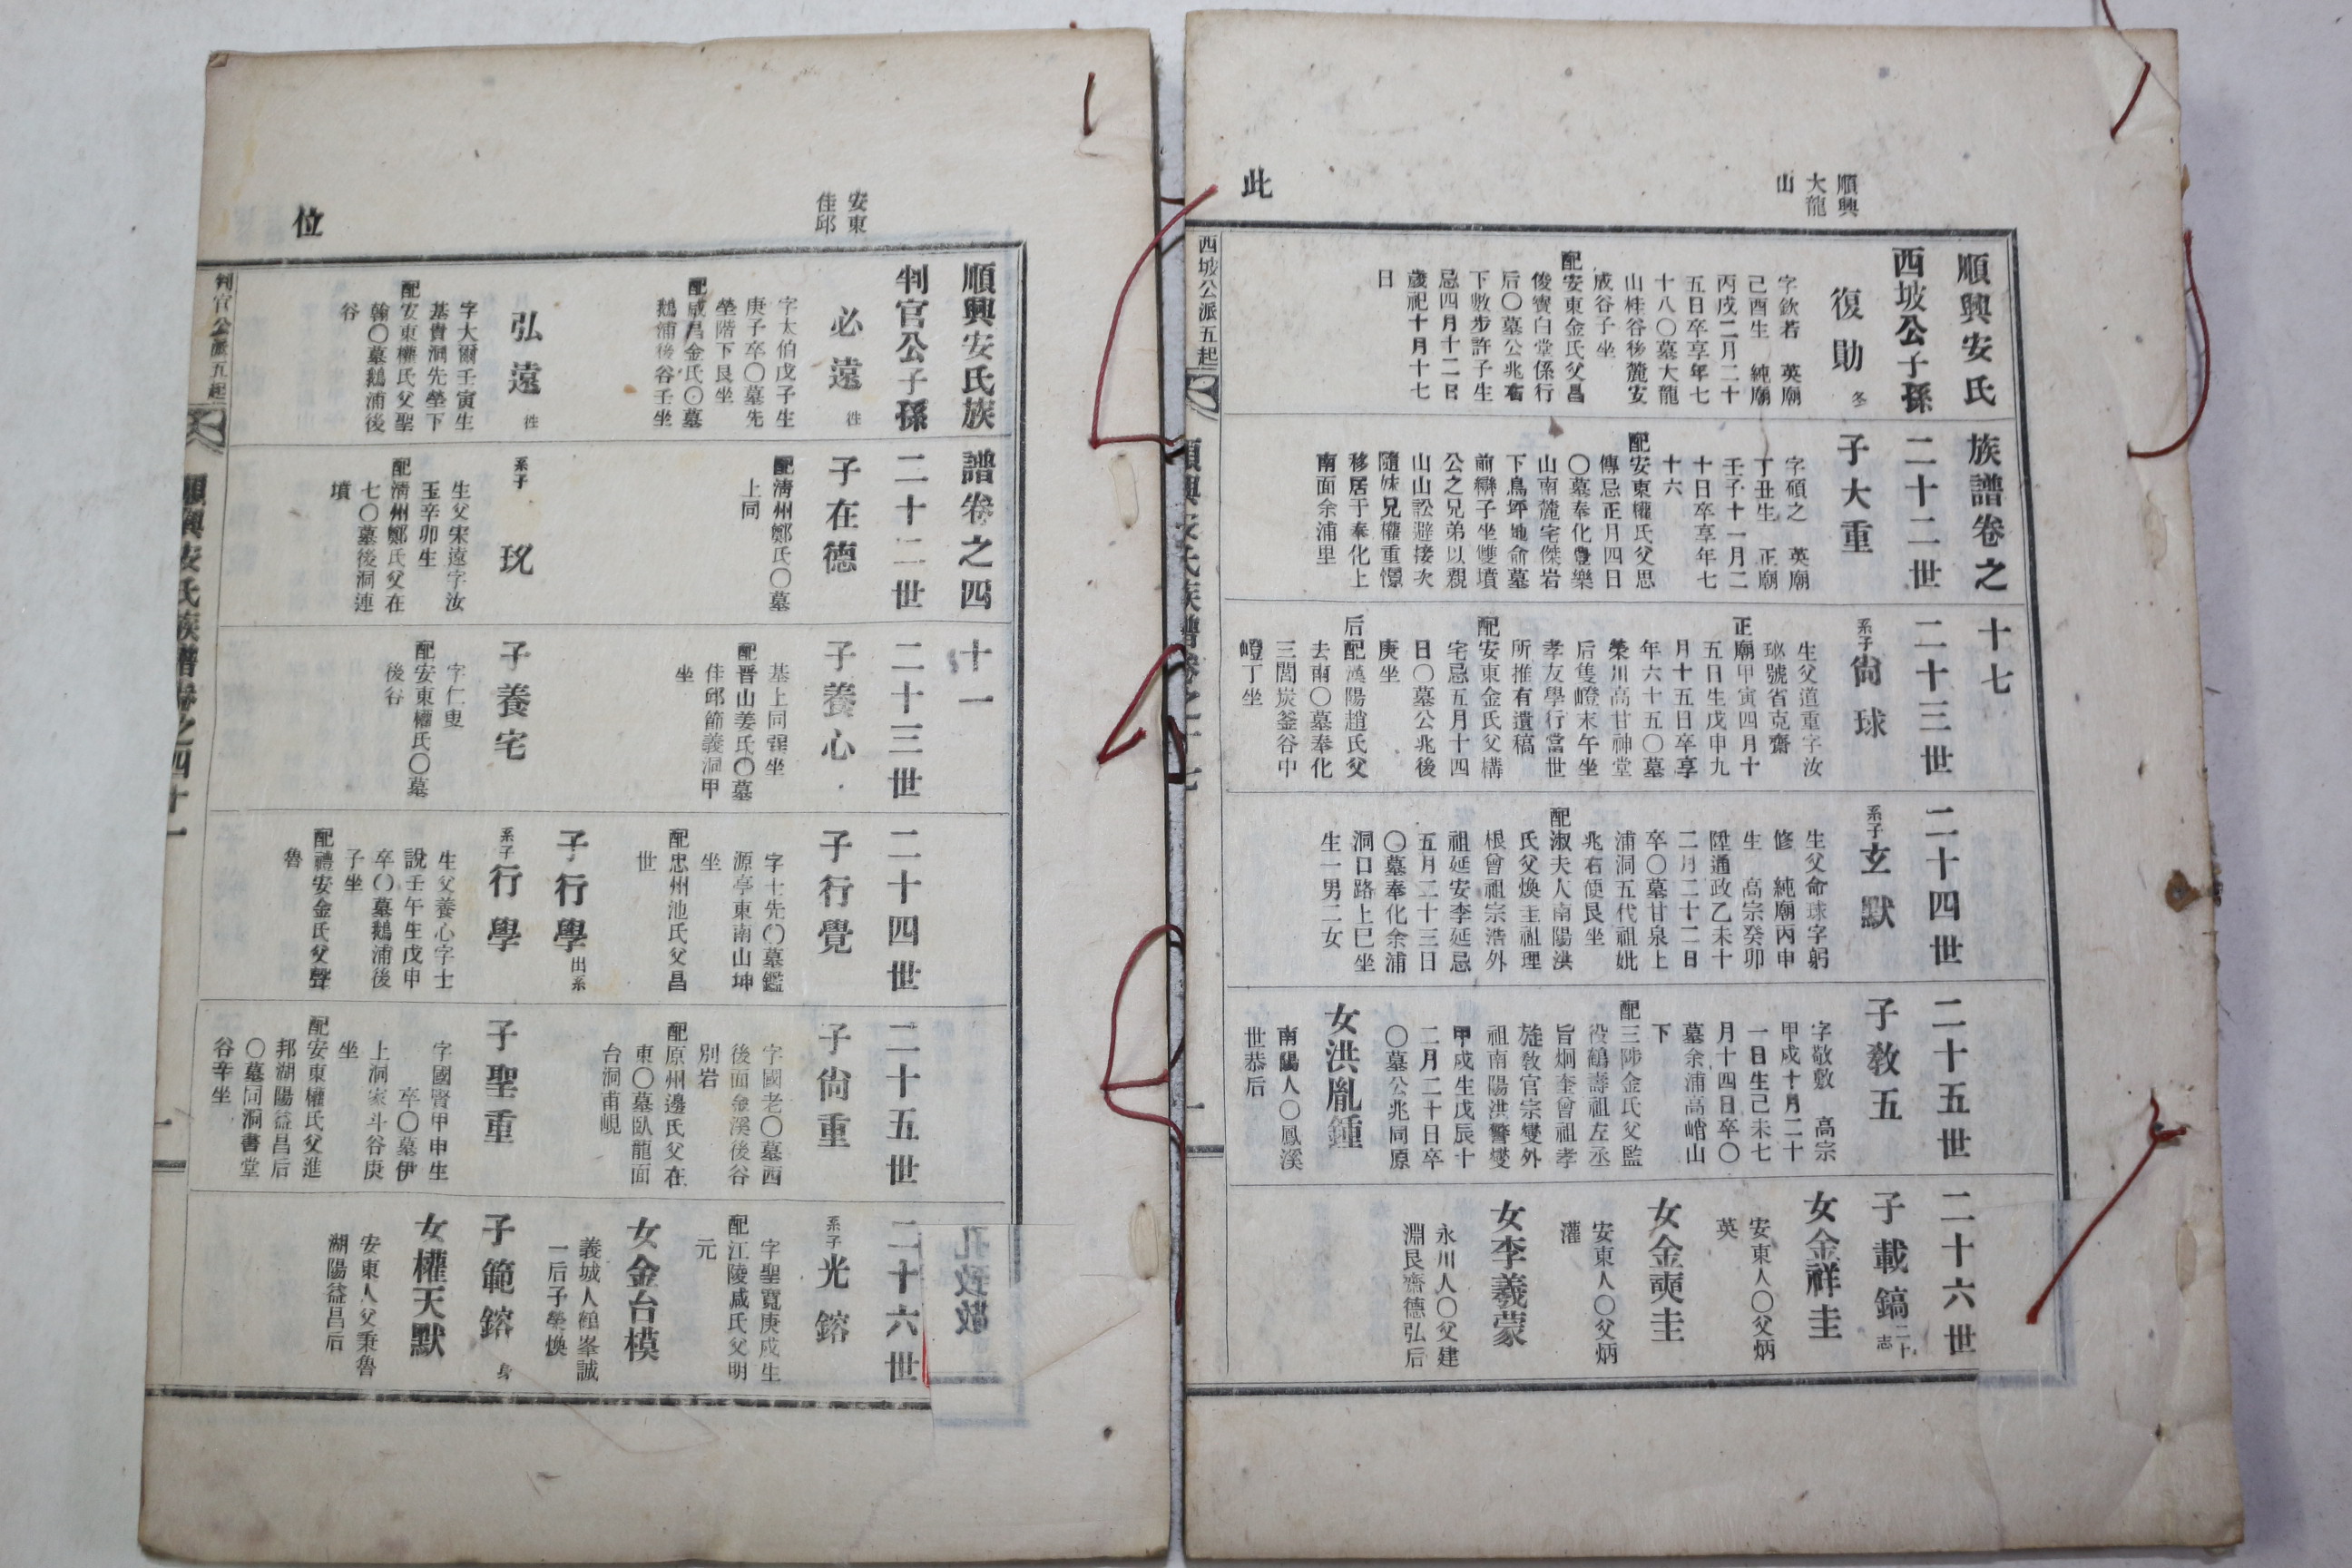 順興
大龍
山
此
順興安氏族譜卷之十七
西坡公子孫
二十二世
二十三世
二十四世
二十五世
二十六世
復勛 冬
字欽若 英廟
己酉生 純廟
丙戌二月二十
五日卒享年七
十八〇墓大龍
山桂谷後麓安
成谷子坐
配安東金氏父昌
俊實白堂係行
后〇墓公兆右
下數步許子生
忌四月十二日
歲祀十月十七
日
子大重
字碩之 英廟
丁丑生 正廟
壬子十一月二
十日卒享年七
十六
配安東權氏父思
傳忌正月四日
〇墓奉化豊樂
山南麓宅傑岩
下鳥坪地俞墓
前巒子坐雙墳
公之兄弟以親
山山訟避接次
隨妹兄權重憬
移居于奉化上
南面余浦里
系子尙球
生父道重字汝
珌號省克齋
正廟甲寅四月十
五日生戊申九
月十五日卒享
年六十五〇墓
榮川高甘神堂
后隻嶝末午坐
孝友學行當世
所推有遺稿
配安東金氏父構
宅忌五月十四
日〇墓公兆後
庚坐
后配漢陽趙氏父
去南〇墓奉化
三閭炭釜谷中
嶝丁坐
系子玄默
生父命球字躬
修 純廟丙申
生 高宗癸卯
陞通政乙未十
二月二十二日
卒〇墓甘泉上
浦洞五代祖妣
兆右便艮坐
配淑夫人南陽洪
氏父煥主祖理
根曾祖宗浩外
祖延安李延忌
五月二十三日
〇墓奉化余浦
洞口路上巳坐
生一男二女
子教五
字敬敷 高宗
甲戌十月二十
一日生己未七
月十四日卒〇
墓余浦高峭山
下
配三陟金氏父監
役鶴壽祖左丞
旨炯奎曾祖孝
旋教官宗燮外
祖南陽洪瞥燮
甲戌生戊辰十
二月二十日卒
〇墓公兆同原
女洪胤鍾
南陽人〇鳳溪
世恭后
子載鎬 二十 志
女金祥圭
安東人〇父炳
英
女金奭圭
安東人〇父炳
灌
女李羲蒙
永川人〇父建
淵艮齋德弘后
西坡公派五起
順興安氏族譜卷之十七
一
安東
佳邱
位
順興安氏族譜卷之四十一
判官公子孫
二十二世
二十三世
二十四世
二十五世
二十六世
必遠 徃
字太伯戊子生
庚子卒〇墓先
塋階下艮坐
配咸昌金氏〇墓
鵝浦後谷壬坐
子在德
配淸州鄭氏〇墓
上同
子養心
基上同巽坐
配晋山姜氏〇墓
佳邱節義洞甲
坐
子行覺
字士先〇墓鑑
源亭東南山坤
坐
配忠州池氏父昌
世
子尙重
字國老〇墓西
後面金溪後谷
別岩
配原州邊氏父在
東〇墓臥龍面
台洞甫峴
系子光鎔
字聖寬庚戌生
配江陵咸氏父明
元
女金台模
義城人鶴峯誠
一后子榮煥
弘遠 徃
字大爾壬寅生
基貴洞先塋下
配安東權氏父聖
翰〇墓鵝浦後
谷
系子玧
生父宋遠字汝
玉辛卯生
配淸州鄭氏父在
七〇墓後洞連
墳
子養宅
字仁叟
配安東權氏〇墓
後谷
子行學 出系
系子行學
生父養心字士
說壬午生戊申
卒〇墓鵝浦後
子坐
配禮安金氏父聲
魯
子聖重
字國賢甲申生
卒〇墓伊
上洞家斗谷庚
坐
配安東權氏父進
邦湖陽益昌后
〇墓同洞書堂
谷辛坐
子範鎔 身
女權天默
安東人父秉魯
湖陽益昌后
孔致敬
判官公派五起
順興安氏族譜卷之四十一
一